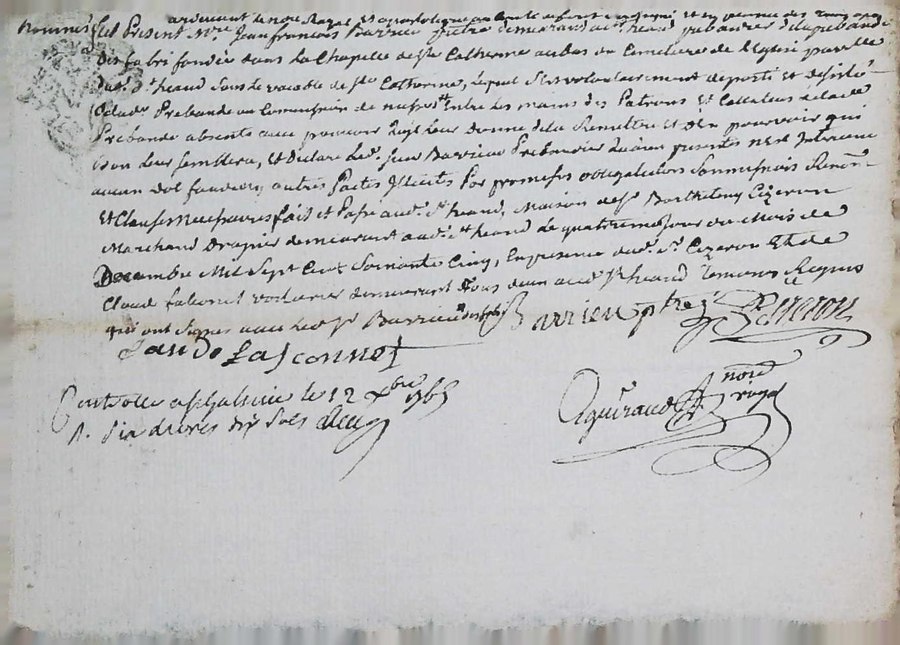 ardement le nore Royal et apostolique en
nommés fut Present Mre Jean francois Barrieu Pretre demeurant au prebandier de la prebande
des fabri fondée dans la Chapelle de Ste Catherine au bas du Cimetiere de l'Eglise parlle
dud. St heand sous le vocable de Ste Catherine, lequel s'est volontairement departi et desisté
de lad. Prebande ou Commission de messes Entre les mains des Patrons Et Collateurs de lad.
Prebande absents avec pouvoir quil leur donne de la Remettre et D'en pourvoir qui
bon leur semblera, et Declare led. Sieur Barrieu Prebandier qu'aux presentes n'est Intervenu
aucun dol fraude ny autres Pactes Illicites Par promesses obligations
Et Clauses fait et Passé aud. St heand, Maison de Sr Barthelemy Cizeron
Marchand Drapier demeurant aud. St heand le quatrieme jour du Mois de
Decembre Mil Sept Cent Soixante Cinq, En presence dud. Sr Cizeron Et de
Claud falconet voiturier demeurant tous deux aud. St heand Temoins Requis
qui ont signés avec led. Sr Barrieu Barrieu ptre Cizeron
Claude falconnet
Controllé a St Galmier le 12 Xbre 1765
R. six livres dix sols
Aguiraud nore royal